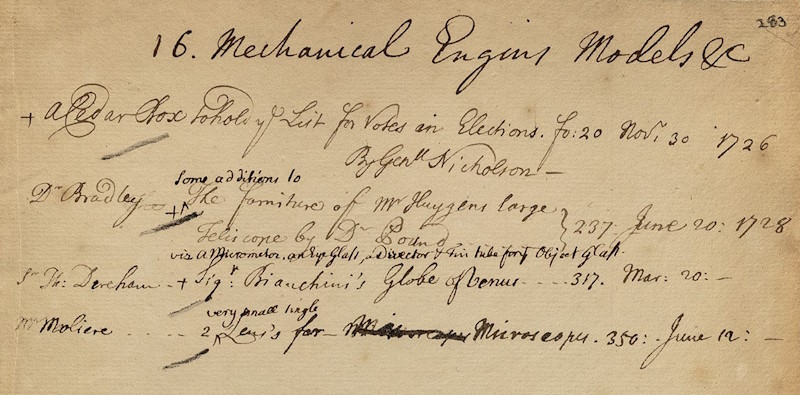 283
16. Mechanical Engins Models &c
+ a Cedar Box to hold ye List for Votes in Elections. fo: 20 Novr. 30 1726
By Genll Nicholson —
Some additions to
Dr Bradley + The furniture of Mr Huygens large
Teliscope by Dr Pound } 237. June 20: 1728
viz a Micrometer, an Eye Glass, a Director & Tin tube for ye Object Glass.
Sr Th: Dereham — + Sigr. Bianchini's Globe of Venus - - - - 317. Mar: 20: —
very small single
Mr Moliere - - - - - 2 Lens's for Microscopes. 350: June 12: —